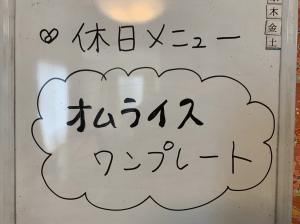 ♡休日メニュー
オムライス
ワンプレート
木
金
土